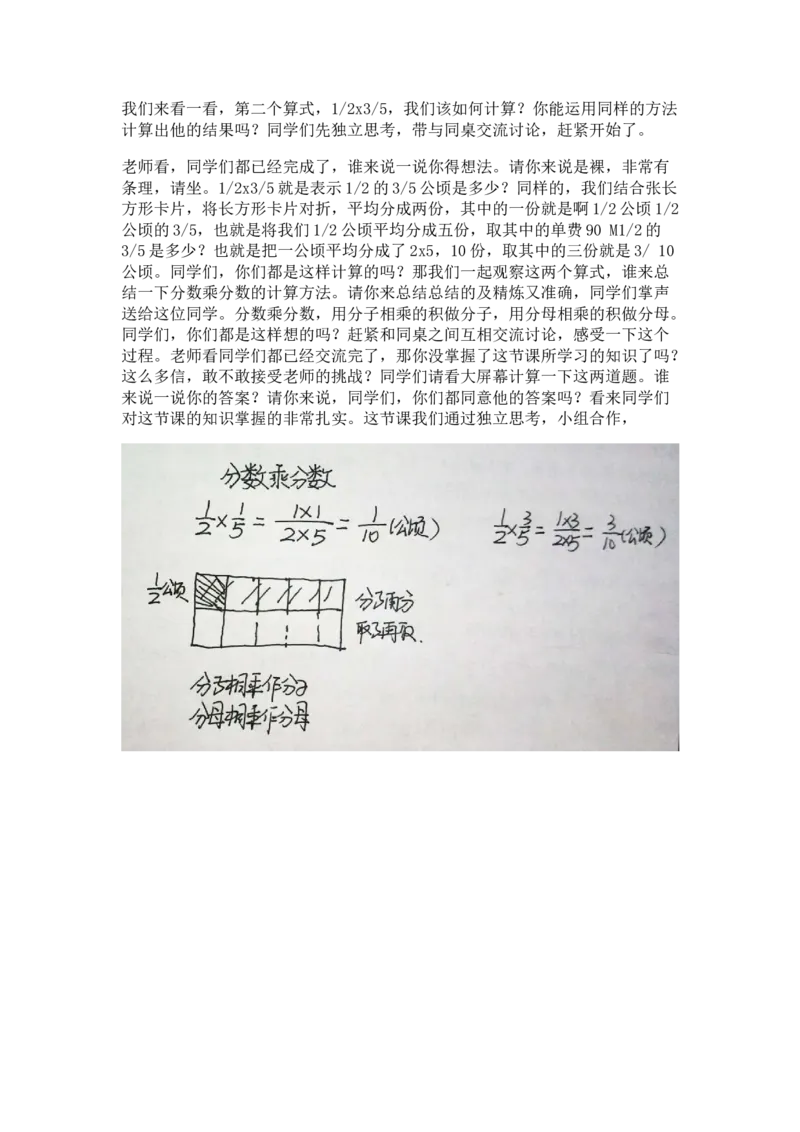 我们来看一看，第二个算式，1/2x3/5，我们该如何计算？你能运用同样的方法
计算出他的结果吗？同学们先独立思考，带与同桌交流讨论，赶紧开始了。
老师看，同学们都已经完成了，谁来说一说你得想法。请你来说是裸，非常有
条理，请坐。1/2x3/5就是表示1/2的3/5公顷是多少？同样的，我们结合张长
方形卡片，将长方形卡片对折，平均分成两份，其中的一份就是啊1/2公顷1/2
公顷的3/5，也就是将我们1/2公顷平均分成五份，取其中的单费90 M1/2的
3/5是多少？也就是把一公顷平均分成了2x5，10份，取其中的三份就是3/ 10
公顷。同学们，你们都是这样计算的吗？那我们一起观察这两个算式，谁来总
结一下分数乘分数的计算方法。请你来总结总结的及精炼又准确，同学们掌声
送给这位同学。分数乘分数，用分子相乘的积做分子，用分母相乘的积做分母。
同学们，你们都是这样想的吗？赶紧和同桌之间互相交流讨论，感受一下这个
过程。老师看同学们都已经交流完了，那你没掌握了这节课所学习的知识了吗？
这么多信，敢不敢接受老师的挑战？同学们请看大屏幕计算一下这两道题。谁
来说一说你的答案？请你来说，同学们，你们都同意他的答案吗？看来同学们
对这节课的知识掌握的非常扎实。这节课我们通过独立思考，小组合作，
分数乘分数
1/2×1/5=1×1/2×5=1/10(公顷) 1/2×3/5=1×3/2×5=3/10(公顷)
1/2公顷 分了再分
取了再取.
分子相乘作分子
分母相乘作分母